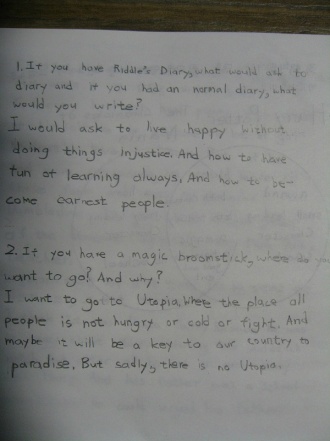 1. If you have Riddle's Diary, what would ask to
diary and if you had an normal diary, what
would you write?
I would ask to live happy without
doing things injustice. And how to have
fun of learning always, And how to be-
come earnest people.
2. If you have a magic broomstick, where do you
want to go? And why?
I want to go to Utopia. Where the place all
people is not hungry or cold or fight. And
maybe it will be a key to our country to
paradise. But sadly, there is no Utopia.